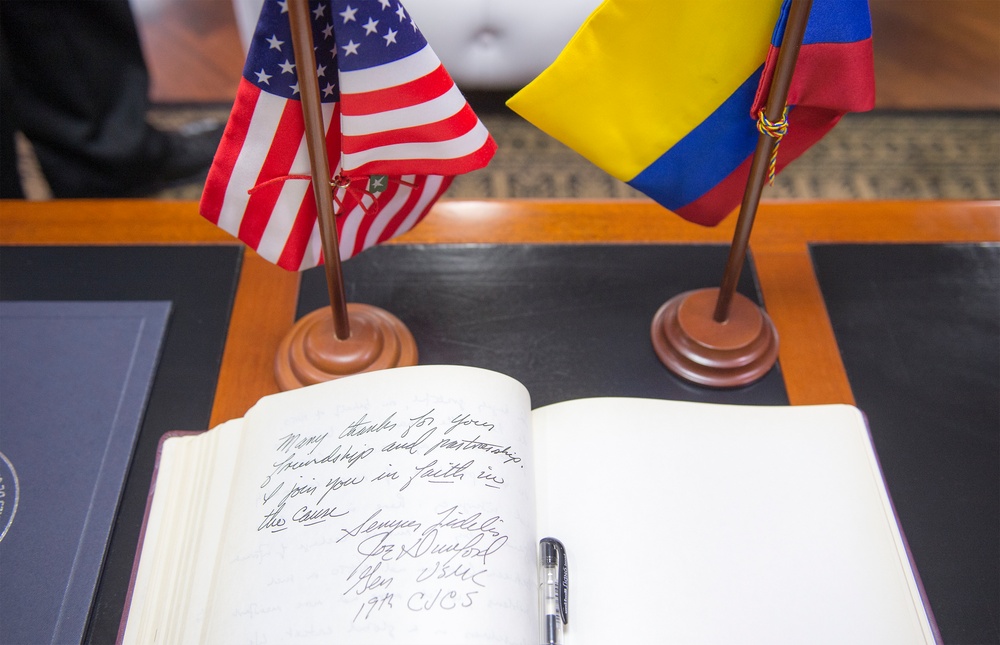 Many thanks for your
friendship and partnership.
I join you in faith in
the cause
Semper Fidelis
Joe Dunford
Gen USMC
19th CJCS